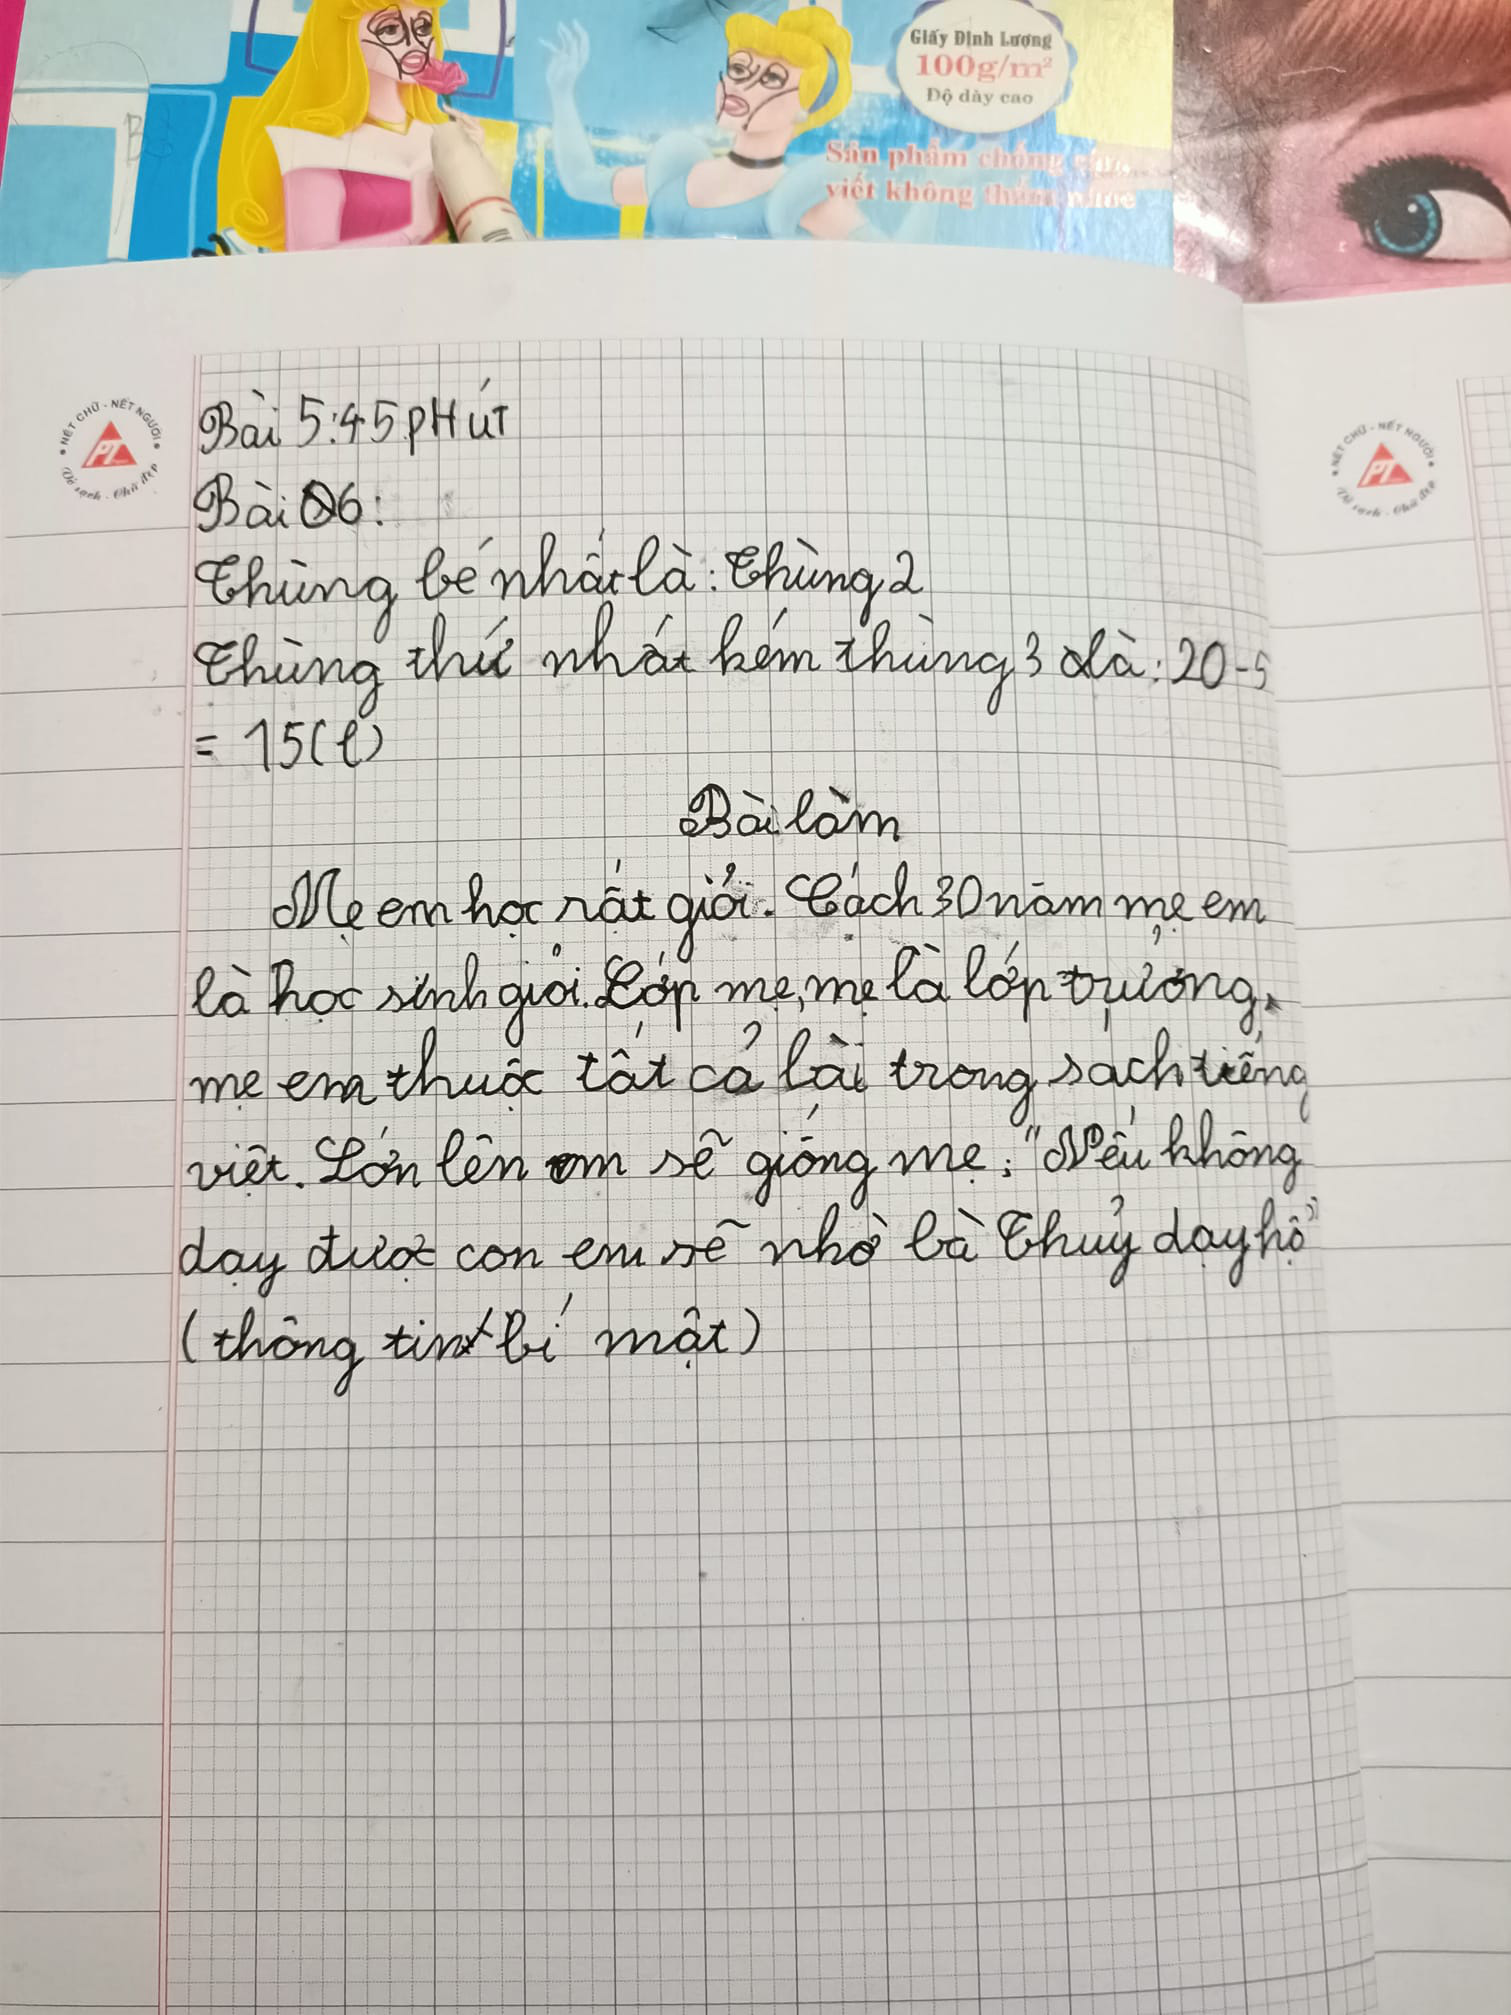 Giấy Định Lượng
100g/m²
Độ dày cao
Sản phẩm chống
viết không thấm nhòe
NÉT CHỮ - NẾT NGƯỜI
PT
Vở sạch - Chữ đẹp
NÉT CHỮ - NẾT NGƯỜI
PT
Vở sạch - Chữ đẹp
Bài 5:45 pHÚT
Bài 6:
Thùng bé nhất là: Thùng 2
Thùng thứ nhất kém thùng 3 là: 20-5
= 15(l)
Bài làm
Mẹ em học rất giỏi. Cách 30 năm mẹ em
là học sinh giỏi. Lớp mẹ, mẹ là lớp trưởng.
mẹ em thuộc tất cả bài trong sách tiếng
việt. Lớn lên em sẽ giống mẹ: "Nếu không
dạy được con em sẽ nhờ bà Thuỷ dạy hộ"
(thông tin bí mật)